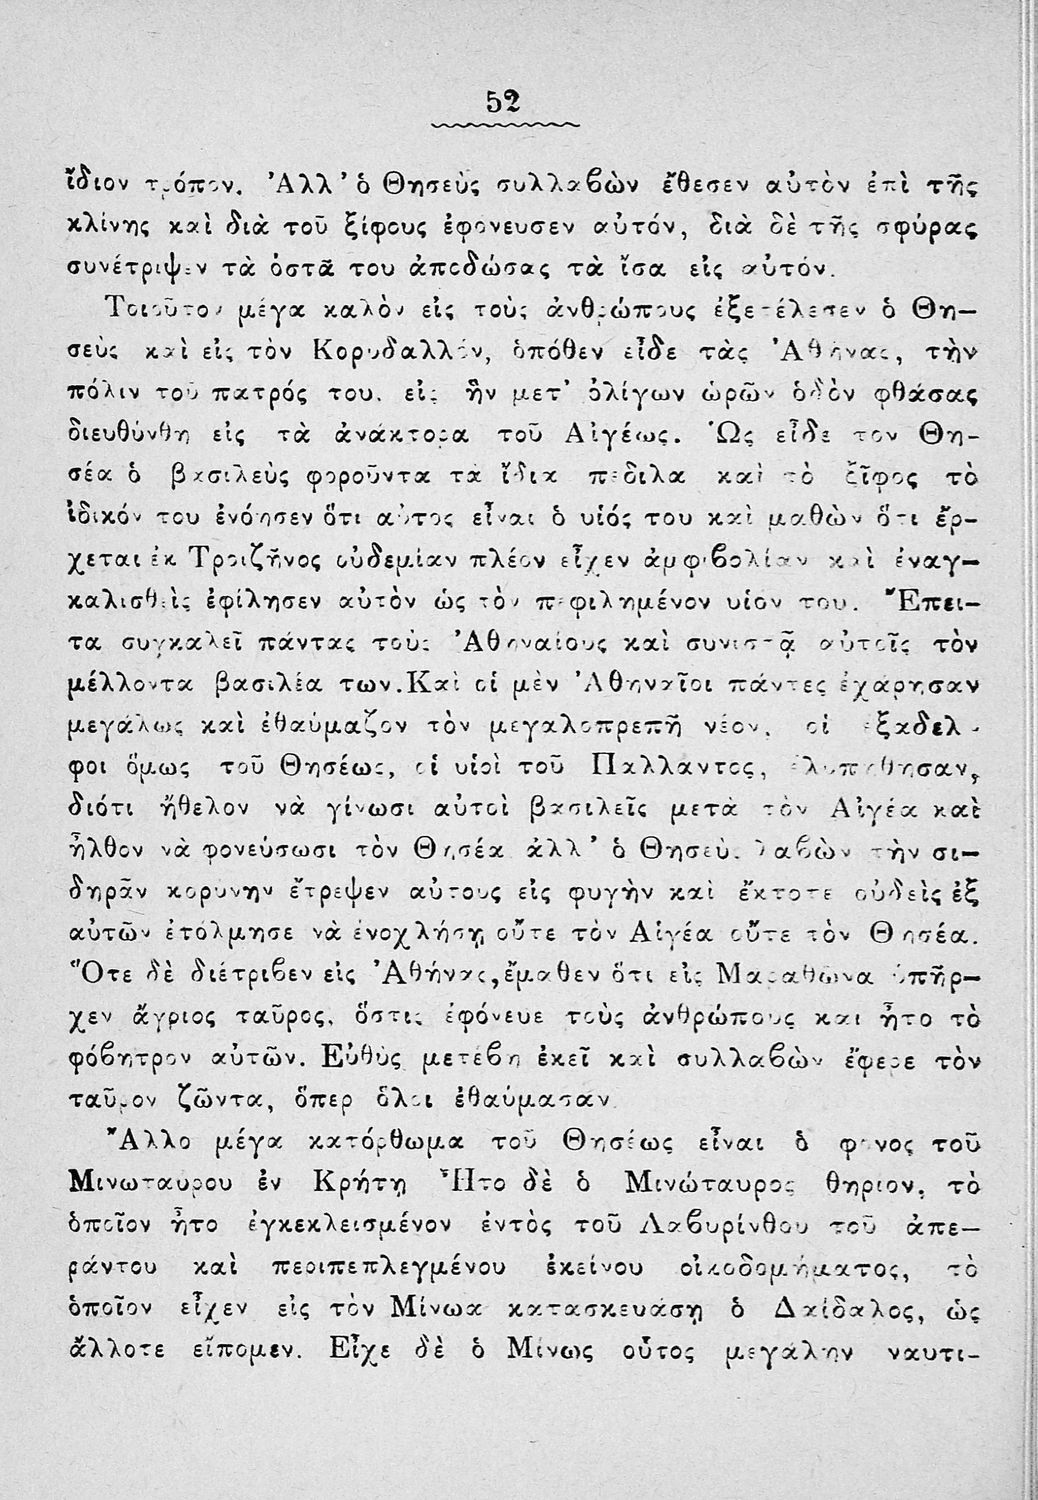 52
ἴδιον τρόπον. Ἀλλ’ ὁ Θησεὺς συλλαβὼν ἔθεσεν αὐτὸν ἐπὶ τῆς
κλίνης καὶ διὰ τοῦ ξίφους ἐφόνευσεν αὐτόν, διὰ δὲ τῆς σφύρας
συνέτριψεν τὰ ὀστᾶ του ἀποδώσας τὰ ἴσα εἰς αὐτόν.
Τοιοῦτον μέγα καλὸν εἰς τοὺς ἀνθρώπους ἐξετέλεσεν ὁ Θη—
σεὺς καὶ εἰς τὸν Κορυδαλλόν, ὁπόθεν εἶδε τὰς Ἀθήνας, τὴν
πόλιν τοῦ πατρός του, εἰς ἣν μετ’ ὀλίγων ὡρῶν ὁδὸν φθάσας
διευθύνθη εἰς τὰ ἀνάκτορα τοῦ Αἰγέως. Ὡς εἶδε τον Θη-
σέα ὁ βασιλεὺς φοροῦντα τα ἴδια πέδιλα καὶ τὸ ξῖφος τὸ
ἰδικόν του ἐνόησεν ὅτι αὐτος εἶναι ὁ υἱός του καὶ μαθὼν ὅτι ἔρ-
χεται ἐκ Τροιζῆνος οὐδεμίαν πλέον εἶχεν ἀμφιβολίαν καὶ ἐναγ—
καλισθεὶς ἐφίλησεν αὐτὸν ὡς τὸν πεφιλημένον υἱον του. Ἔπει—
τα συγκαλεῖ πάντας τοὺς Ἀθηναίους καὶ συνιστᾷ αὐτοῖς τὸν
μέλλοντα βασιλέα των. Καὶ οἱ μὲν Ἀθηναῖοι πάντες ἐχάρησαν
μεγάλως καὶ ἐθαύμαζον τὸν μεγαλοπρεπῆ νέον, οἱ ἐξαδελ-
φοι ὅμως τοῦ Θησέως, οἱ υἱοὶ τοῦ Παλλαντος, ἐλυπήθησαν,
διότι ἤθελον νὰ γίνωσι αὐτοὶ βασιλεῖς μετὰ τὸν Αἰγέα καὶ
ἦλθον νὰ φονεύσωσι τὸν Θησέα ἀλλ’ ὁ Θησεὺς λαβὼν τὴν σι—
δηρᾶν κορύνην ἔτρεψεν αὐτους εἰς φυγὴν καὶ ἔκτοτε οὐδεὶς ἐξ
αὐτῶν ἐτόλμησε νὰ ἐνοχλήσῃ οὔτε τὸν Αἰγέα οὔτε τὸν Θησέα.
Ὅτε δὲ διέτριβεν εἰς Ἀθήνας, ἔμαθεν ὅτι εἰς Μαραθῶνα ὑπῆρ—
χεν ἄγριος ταῦρος, ὅστις ἐφόνευε τοὺς ἀνθρώπους και ἦτο τὸ
φόβητρον αὐτῶν. Εὐθὺς μετέβη ἐκεῖ καὶ συλλαβὼν ἔφερε τὸν
ταῦρον ζῶντα, ὅπερ ὅλοι ἐθαύμασαν
Ἄλλο μέγα κατόρθωμα τοῦ Θησέως εἶναι ὁ φόνος τοῦ
Μινωταύρου ἐν Κρήτῃ Ἦτο δὲ ὁ Μινώταυρος θηριον, τὸ
ὁποῖον ἦτο ἐγκεκλεισμένον ἐντὸς τοῦ Λαβυρίνθου τοῦ ἀπε—
ράντου καὶ περιπεπλεγμένου ἐκείνου οἰκοδομήματος, τὸ
ὁποῖον εἶχεν εἰς τὸν Μίνωα κατασκευάσῃ ὁ Δαίδαλος, ὡς
ἄλλοτε εἴπομεν. Εἶχε δὲ ὁ Μίνως οὗτος μεγάλην ναυτι-